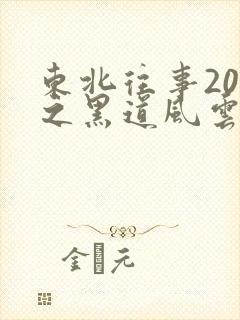 東北往事20
之黑道風雲
金 元